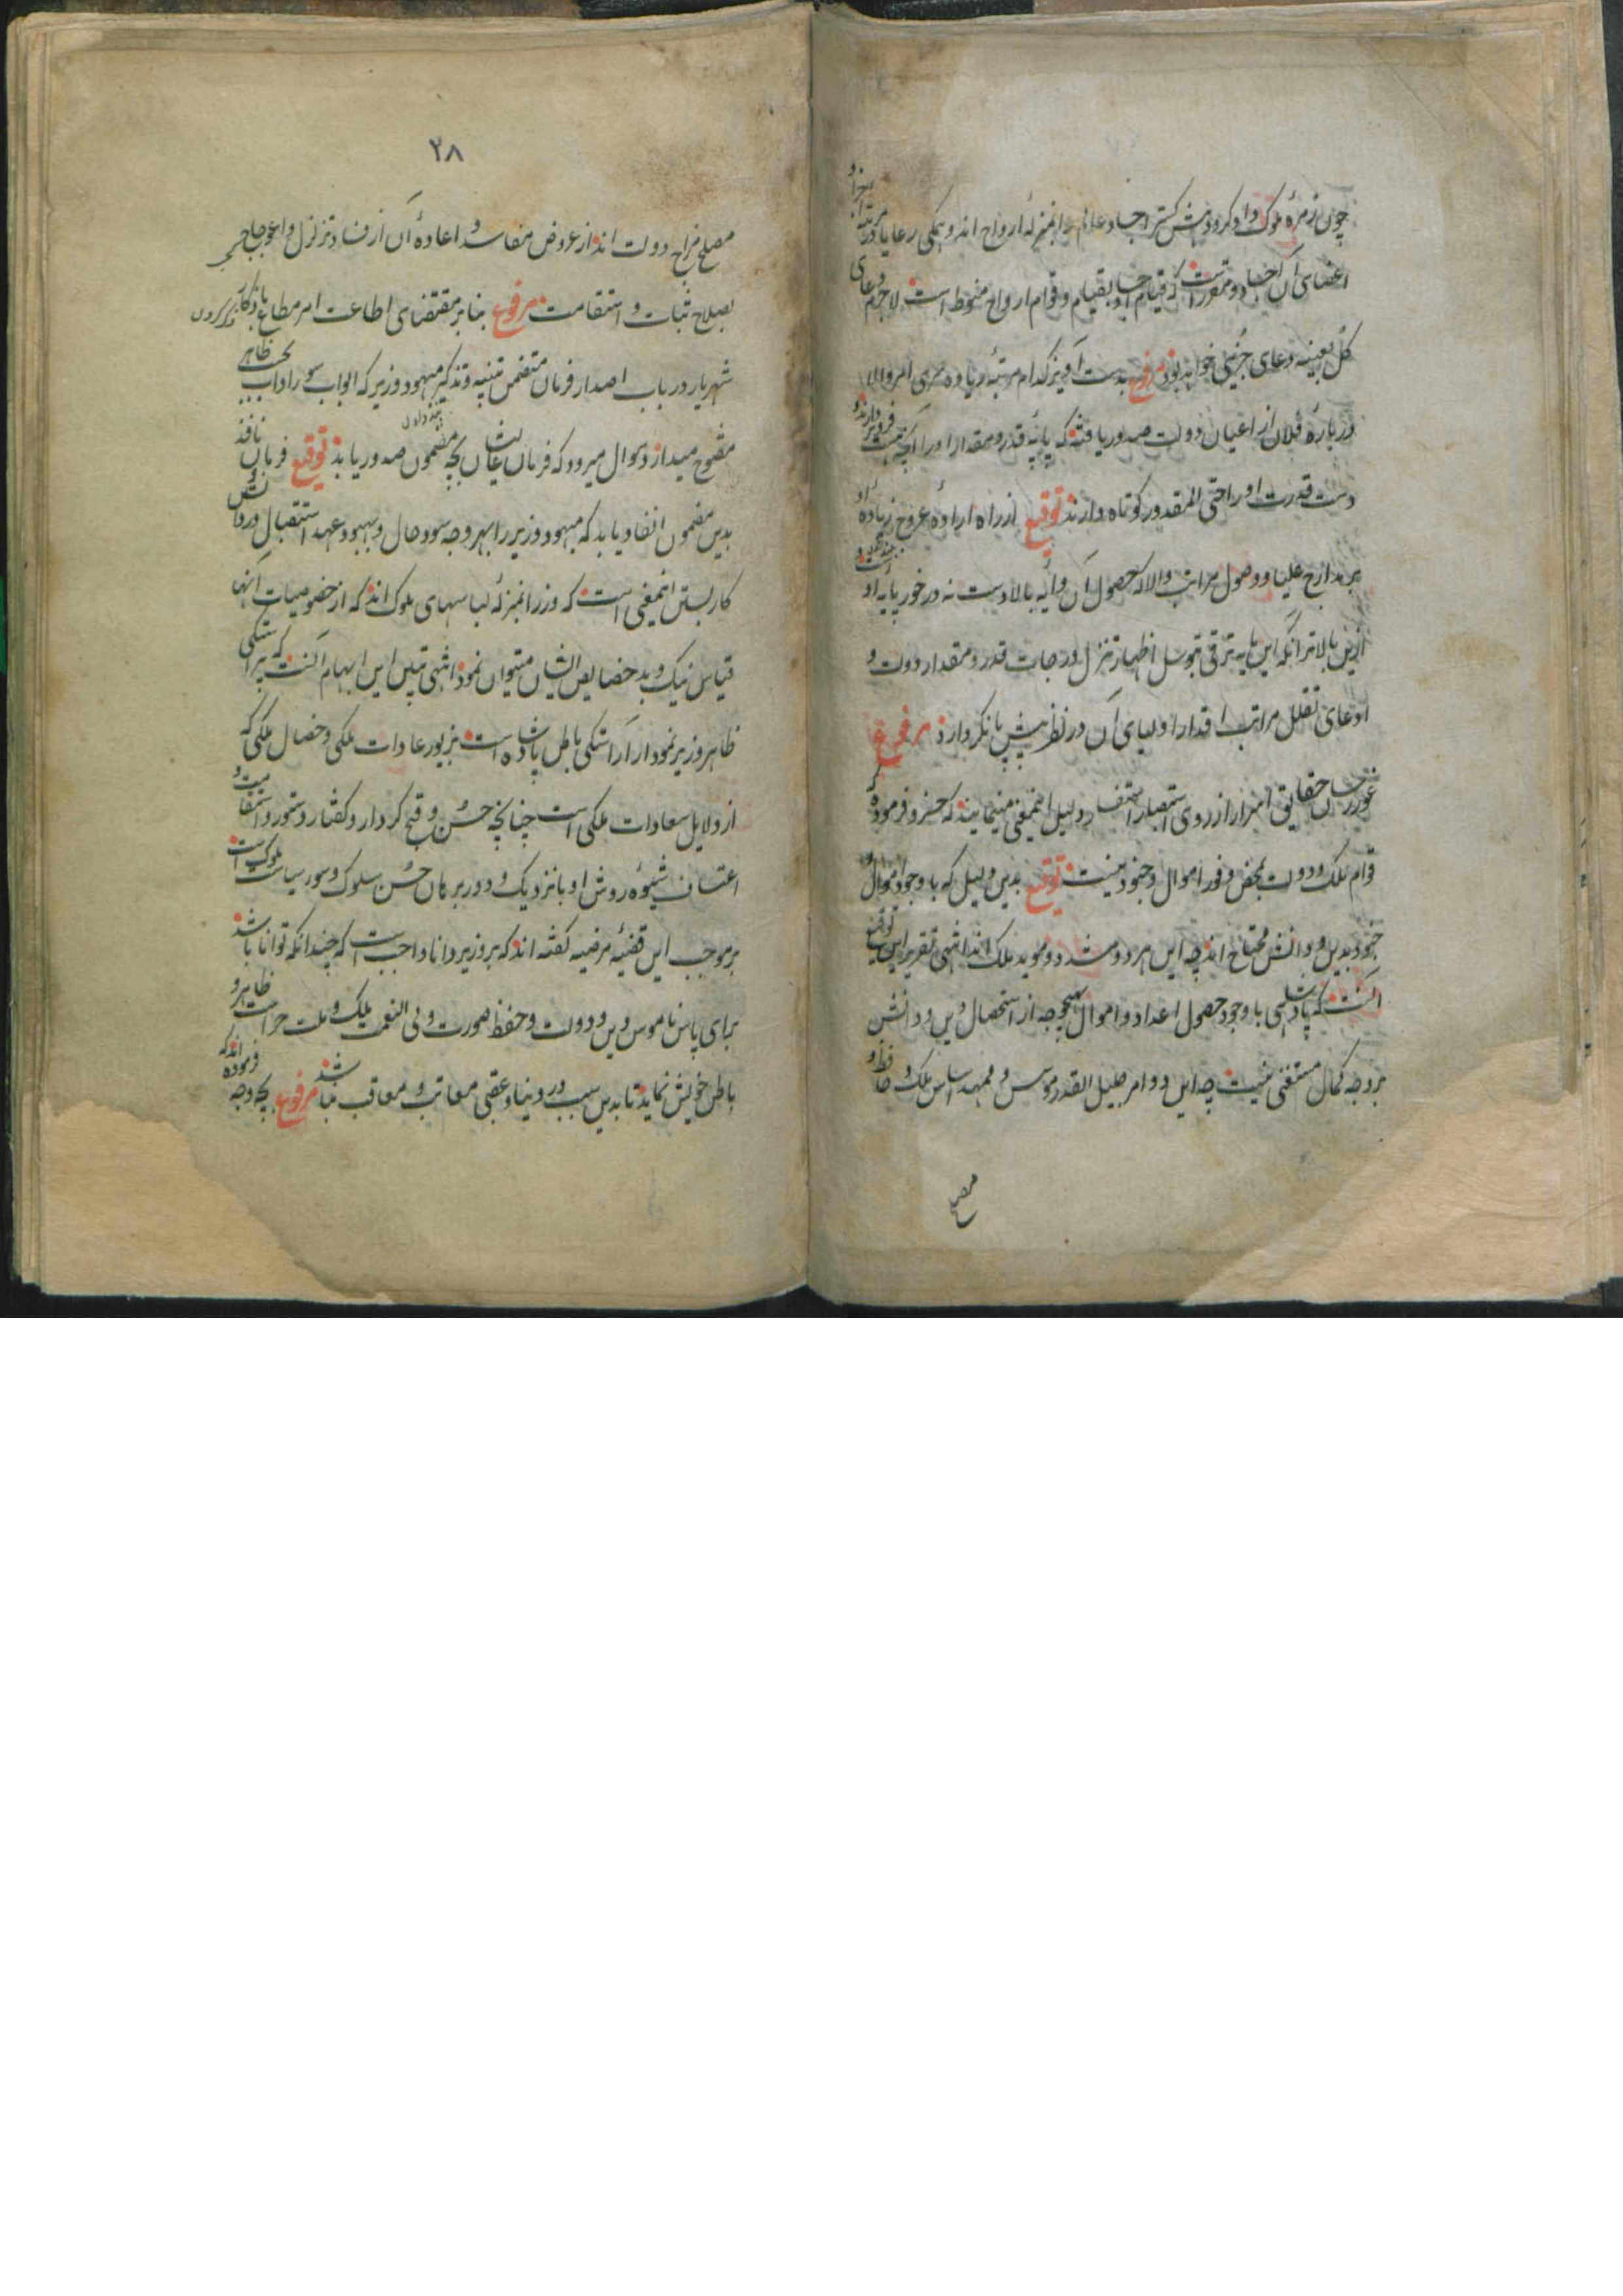 چون زمرهٔ ملوک دادگر و دهش گستر اجساد عالم را بمنزلهٔ ارواح اند و همگی رعایا در مرتبهٔ اجزا و
اعضای آن اجساد و مقرر است که قیام اجساد بقیام و قوام ارواح منوط است لاجرم دعای
کل بعینه دعای جزئی خواهد بود مرفوع بدست آویز کدام مرتبهٔ زیاده سری امر والا
در بارهٔ فلان از اعیان دولت صدور یافته که پایهٔ قدر و مقدار او را آنچه هست فروتر دارند و
دست قدرت او را حتی المقدور کوتاه دارند توقیع از راه ارادهٔ عروج زیاده او
بمدارج علیا و وصول مراتب والا که حصول آن وایه بالادست نه در خور پایه او
ازین بالاتر آنکه این پایه ترقی بتوسل اظهار تنزل درجات قدر و مقدار دولت و
ادعای تقلل مراتب اقدار اولیای آن در نظر پیش پا نگر دارد مرفوع
غوررسان حقایق اسرار از روی استبصار استفسار دلیل اینمعنی مینمایند که خسرو فرموده که
قوام ملک و دولت بمحض وفور اموال و جنود نیست توقیع بدین دلیل که با وجود اموال و
جنود بدین و دانش محتاج اند چه این هر دو مشدد و موید ملک اند انتهی تقریر این توقیع
آنست که پادشاهی با وجود حصول اعداد و اموال بهیچوجه از استحصال دین و دانش
بر وجه کمال مستغنی نیست چه این دو امر جلیل القدر موسس و ممهد اساس ملک و حافظ و
مصلح
۲۸
مصلح مزاج دولت اند از عروض مفاسد و اعادهٔ آن از فساد و تزلزل و اعوجاج
بصلاح و ثبات و استقامت مرفوع بنابر مقتضای اطاعت امر مطاع
شهریار در باب اصدار فرمان متضمن تنبیه و تذکیر مهبود وزیر که ابواب سو راداب بحسب ظاهر
مفتوح میدارد سوال میرود که فرمان عالیشان بچه مضمون صدور یابد توقیع فرمان نافذ
بدین مضمون انفاد یابد که مهبود وزیر را بهر وجه سود حال و بهبود عهد استقبال در
کار بستن اینمعنی است که وزرا بمنزلهٔ لباسهای ملوک اند که از خصوصیات آنها
قیاس نیک و بد خصایص ایشان میتوان نمود انتهی تبیین این ابهام آنست که آراستگی
ظاهر وزیر نمودار آراستگی باطن پادشاه است بزیور عادات ملکی و خصال ملکی که
از دلایل سعادات ملکی است چنانچه حسن و قبح کردار و گفتار دستور و استقامت و
اعتساف شیوه روش او با نزدیک و دور برهان حسن سلوک و سو سیاست ملوک است
بر موجب این قضیهٔ مرضیه گفته اند که بر وزیر دانا واجب است که چندانکه توانا باشد
برای پاس ناموس دین و دولت و حفظ صورت ولی النعم ملک و ملت حراست ظاهر و
باطن خویش نماید تا بدین سبب در دنیا و عقبی معاتب و معاقب نباشد مرفوع بچه وجه فرموده اند که